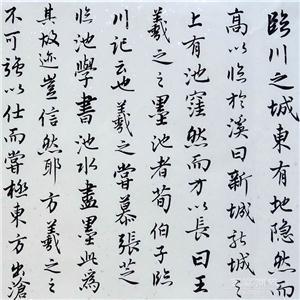 臨川之城東有地隱然而
高以临於溪曰新城新城之
上有池窪然而方以長曰王
羲之之墨池者荀伯子臨
川記云也羲之嘗慕張芝
临池學書池水盡墨此為
其故迹豈信然耶方羲之之
不可强以仕而嘗極東方出滄